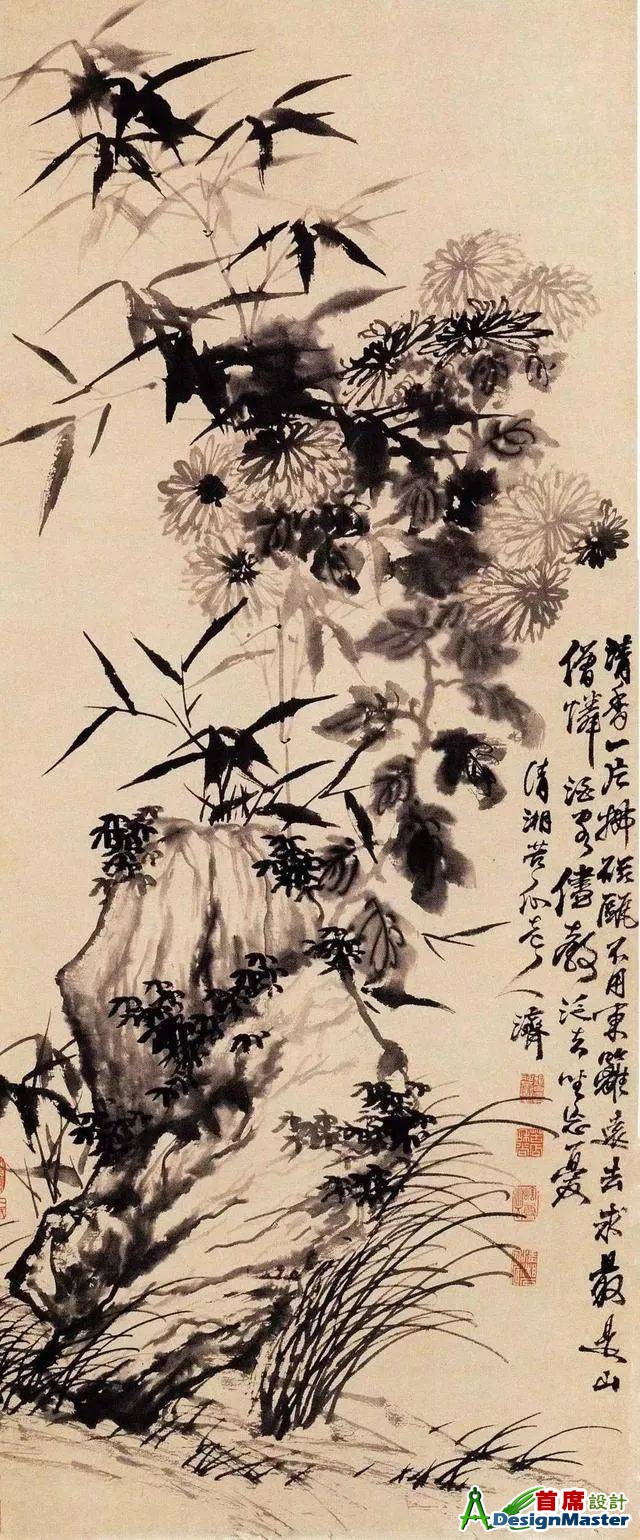 清香一片拂磁甌不用東籬遠去求最是山
僧憐酒客儘教泛去坐忘憂
清湘苦瓜老人濟
首席設計
ADesignMaster